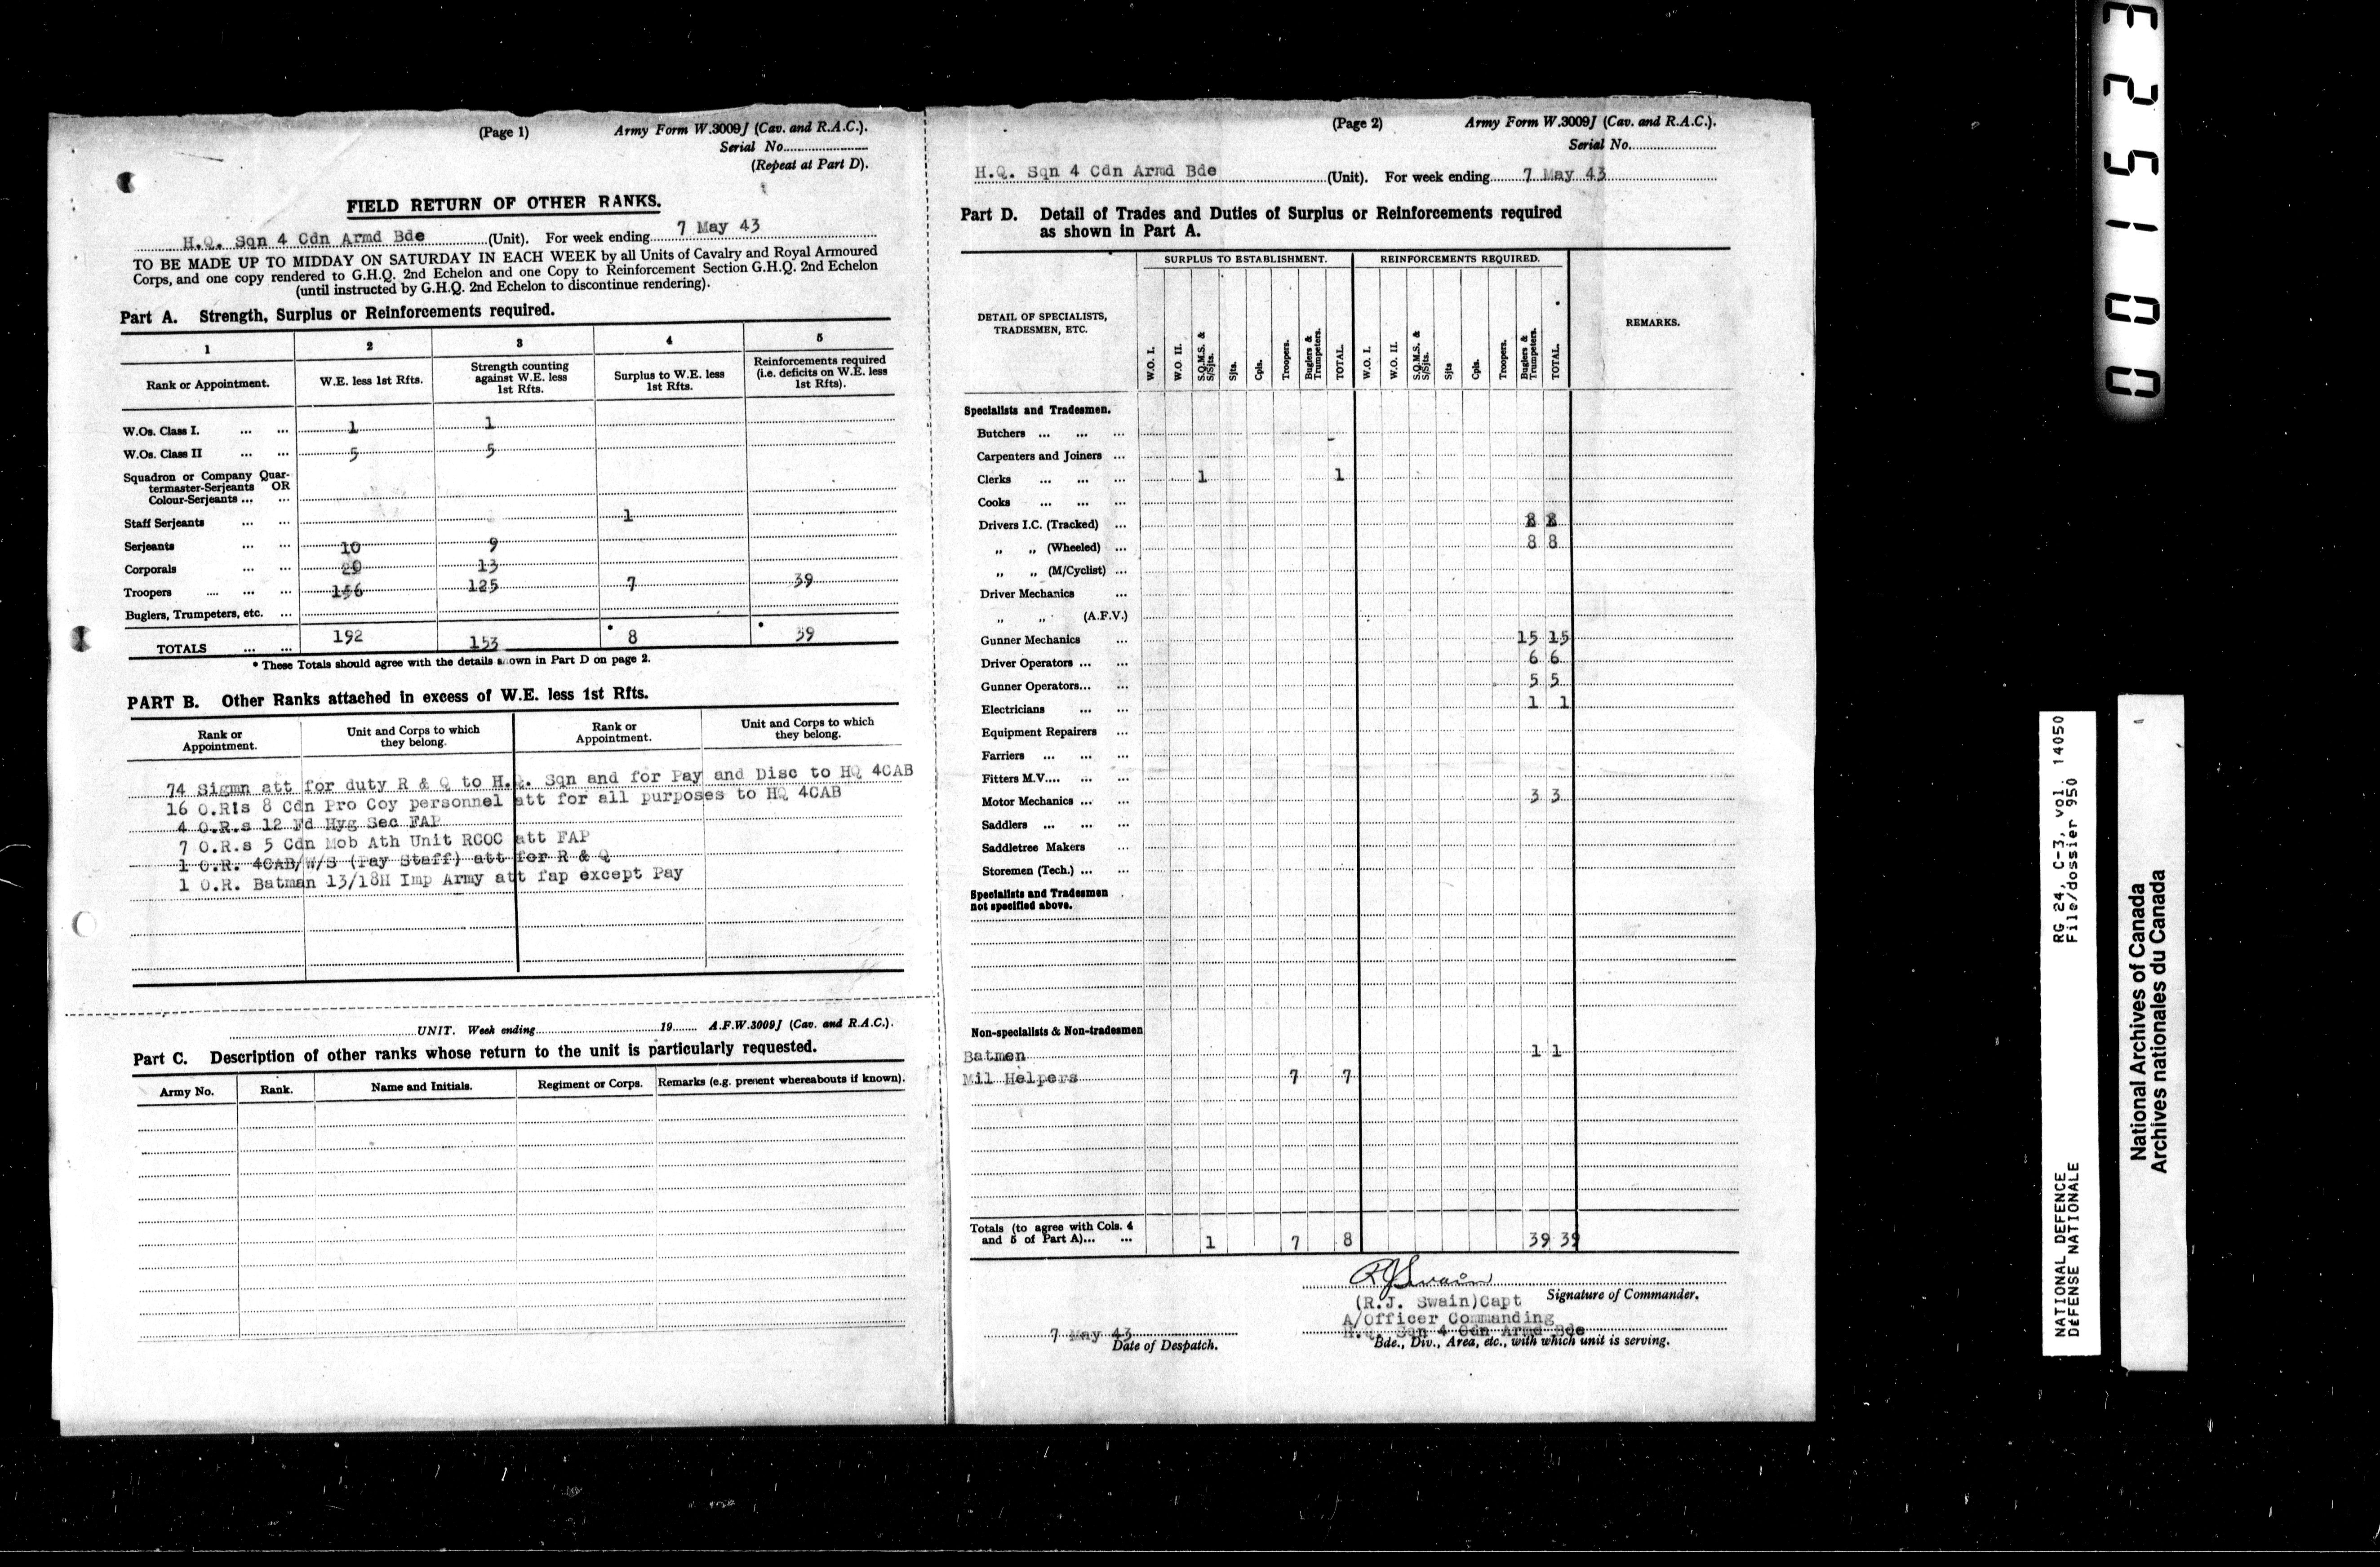 (Page 1) Army Form W.3009J (Cav. and R.A.C.).
Serial No.
(Repeat at Part D).
FIELD RETURN OF OTHER RANKS.
H.Q. Sqn 4 Cdn Armd Bde (Unit). For week ending 7 May 43
TO BE MADE UP TO MIDDAY ON SATURDAY IN EACH WEEK by all Units of Cavalry and Royal Armoured
Corps, and one copy rendered to G.H.Q. 2nd Echelon and one Copy to Reinforcement Section G.H.Q. 2nd Echelon
(until instructed by G.H.Q. 2nd Echelon to discontinue rendering).
Part A. Strength, Surplus or Reinforcements required.
1 2 3 4 5
Rank or Appointment. W.E. less 1st Rfts. Strength counting against W.E. less 1st Rfts. Surplus to W.E. less 1st Rfts. Reinforcements required (i.e. deficits on W.E. less 1st Rfts).
W.Os. Class I. ... ... 1 1
W.Os. Class II ... ... 5 5
Squadron or Company Quar-
termaster-Serjeants OR
Colour-Serjeants ... ...
Staff Serjeants ... ... 1
Serjeants ... ... 10 9
Corporals ... ... 20 13
Troopers .... ... ... 156 125 7 39
Buglers, Trumpeters, etc. ...
TOTALS ... ... 192 153 * 8 * 39
* These Totals should agree with the details shown in Part D on page 2.
PART B. Other Ranks attached in excess of W.E. less 1st Rfts.
Rank or Appointment. Unit and Corps to which they belong. Rank or Appointment. Unit and Corps to which they belong.
74 Sigmn att for duty R & Q to H.Q. Sqn and for Pay and Disc to HQ 4CAB
16 O.R's 8 Cdn Pro Coy personnel att for all purposes to HQ 4CAB
4 O.R.s 12 Fd Hyg Sec FAP
7 O.R.s 5 Cdn Mob Ath Unit RCOC att FAP
1 O.R. 4CAB/W/S (Pay Staff) att for R & Q
1 O.R. Batman 13/18H Imp Army att fap except Pay
UNIT. Week ending 19 A.F.W.3009J (Cav. and R.A.C.).
Part C. Description of other ranks whose return to the unit is particularly requested.
Army No. Rank. Name and Initials. Regiment or Corps. Remarks (e.g. present whereabouts if known).
(Page 2) Army Form W.3009J (Cav. and R.A.C.).
Serial No.
H.Q. Sqn 4 Cdn Armd Bde (Unit). For week ending 7 May 43
Part D. Detail of Trades and Duties of Surplus or Reinforcements required
as shown in Part A.
DETAIL OF SPECIALISTS, TRADESMEN, ETC. SURPLUS TO ESTABLISHMENT. REINFORCEMENTS REQUIRED. REMARKS.
W.O. I. W.O II. S.Q.M.S. & S/Sjts. Sjts. Cpls. Troopers. Buglers & Trumpeters. TOTAL. W.O. I. W.O. II. S.Q.M.S. & S/Sjts. Sjts Cpls. Troopers. Buglers & Trumpeters. TOTAL.
Specialists and Tradesmen.
Butchers ... ... ...
Carpenters and Joiners ...
Clerks ... ... ... 1 1
Cooks ... ... ...
Drivers I.C. (Tracked) ...
" " (Wheeled) ... 8 8
" " (M/Cyclist) ...
Driver Mechanics ...
" " (A.F.V.)
Gunner Mechanics ... 15 15
Driver Operators ... ... 6 6
Gunner Operators... ... 5 5
Electricians ... ... 1 1
Equipment Repairers ...
Farriers ... ... ...
Fitters M.V.... ... ...
Motor Mechanics ... ... 3 3
Saddlers ... ... ...
Saddletree Makers ...
Storemen (Tech.) ... ...
Specialists and Tradesmen
not specified above.
Non-specialists & Non-tradesmen
Batmen 1 1
Mil Helpers 7 7
Totals (to agree with Cols. 4
and 5 of Part A)... ... 1 7 8 39 39
RJSwain
(R.J. Swain)Capt Signature of Commander.
A/Officer Commanding
7 May 43 H.Q. Sqn 4 Cdn Armd Bde
Date of Despatch. Bde., Div., Area, etc., with which unit is serving.
001523
RG 24, C-3, vol. 14050
File/dossier 950
NATIONAL DEFENCE
DÉFENSE NATIONALE
National Archives of Canada
Archives nationales du Canada